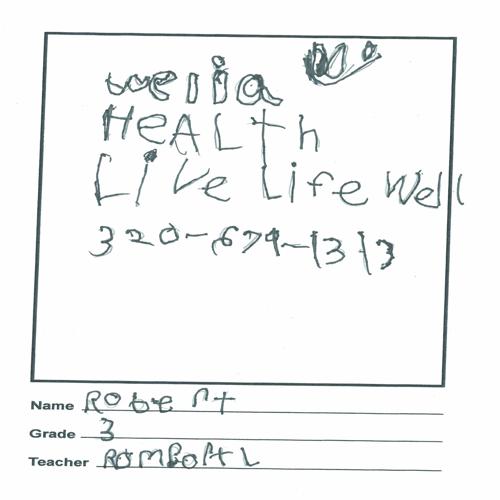 welia
HEALth
LiVe Life Well
320-679-1313
Name Robert
Grade 3
Teacher ROMBOPtL